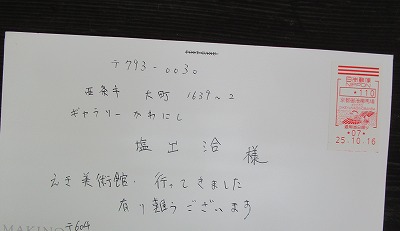 〒793-0030
西条市 大町 1639~2
ギャラリー かわにし
塩出 治 様
えき美術館、行ってきました
有り難うございます
日本郵便
NIPPON
*110
*07*
25.10.16
MAKINO
〒604